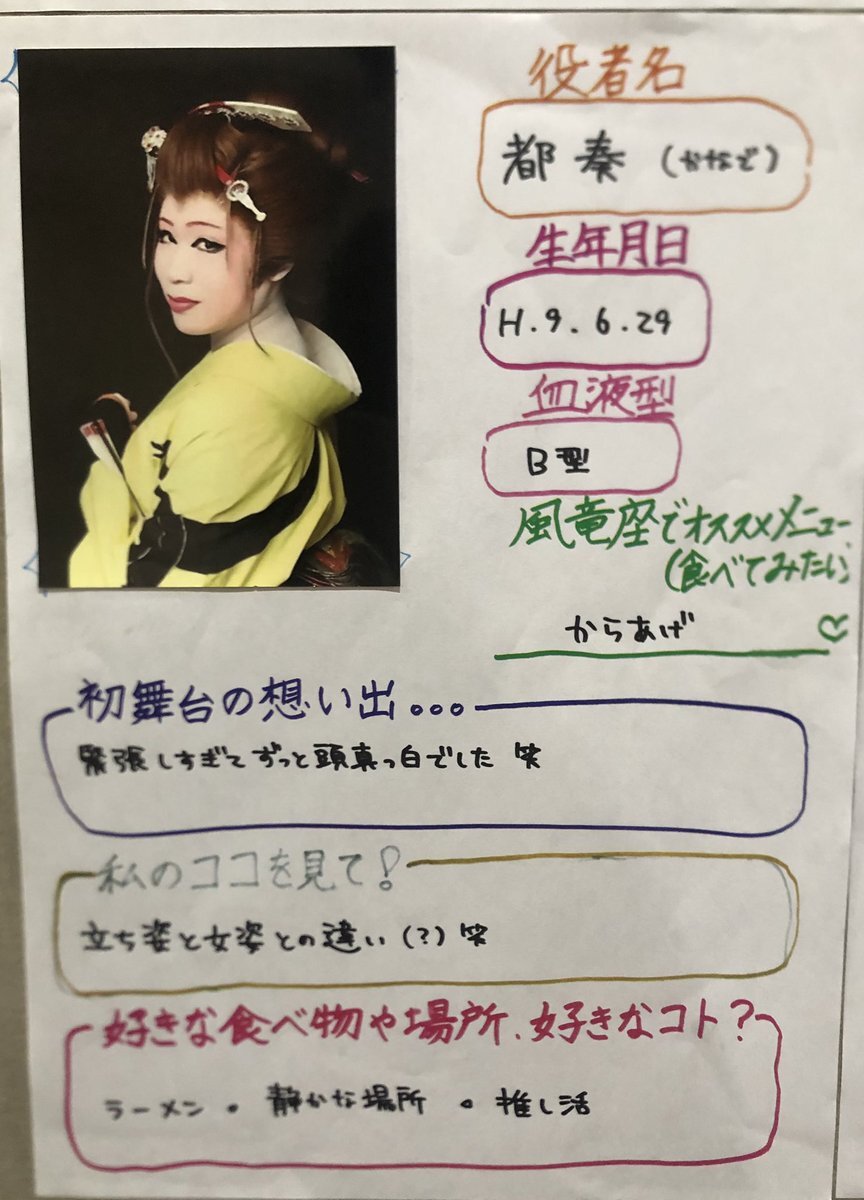 役者名
都 奏 (かなで)
生年月日
H.9.6.29
血液型
B型
風竜座でオススメメニュー
(食べてみたい)
からあげ
初舞台の想い出...
緊張しすぎてずっと頭真っ白でした 笑
私のココを見て!
立ち姿と女姿との違い(?)笑
好きな食べ物や場所、好きなコト?
ラーメン・静かな場所・推し活